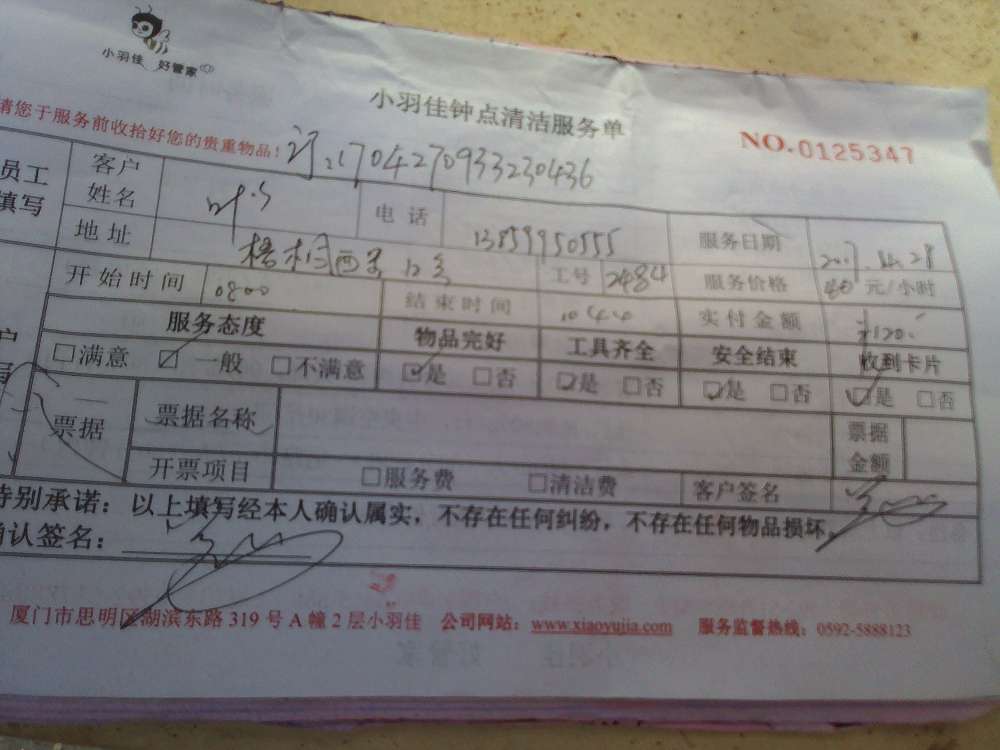 小羽佳 好管家
小羽佳钟点清洁服务单
NO.0125347
请您于服务前收拾好您的贵重物品!
订:1704270933230436
员工填写
客户姓名
电话 13859950555
服务日期
地址
工号 2484
服务价格 40元/小时
开始时间 0800
结束时间 1044
实付金额 ¥120.
服务态度 物品完好 工具齐全 安全结束 收到卡片
□满意 ☑一般 □不满意 ☑是 □否 ☑是 □否 ☑是 □否 ☑是 □否
票据 票据名称 票据金额
开票项目 □服务费 □清洁费 客户签名
特别承诺:以上填写经本人确认属实,不存在任何纠纷,不存在任何物品损坏。
确认签名:
厦门市思明区湖滨东路 319 号 A 幢 2 层小羽佳 公司网站:www.xiaoyujia.com 服务监督热线:0592-5888123